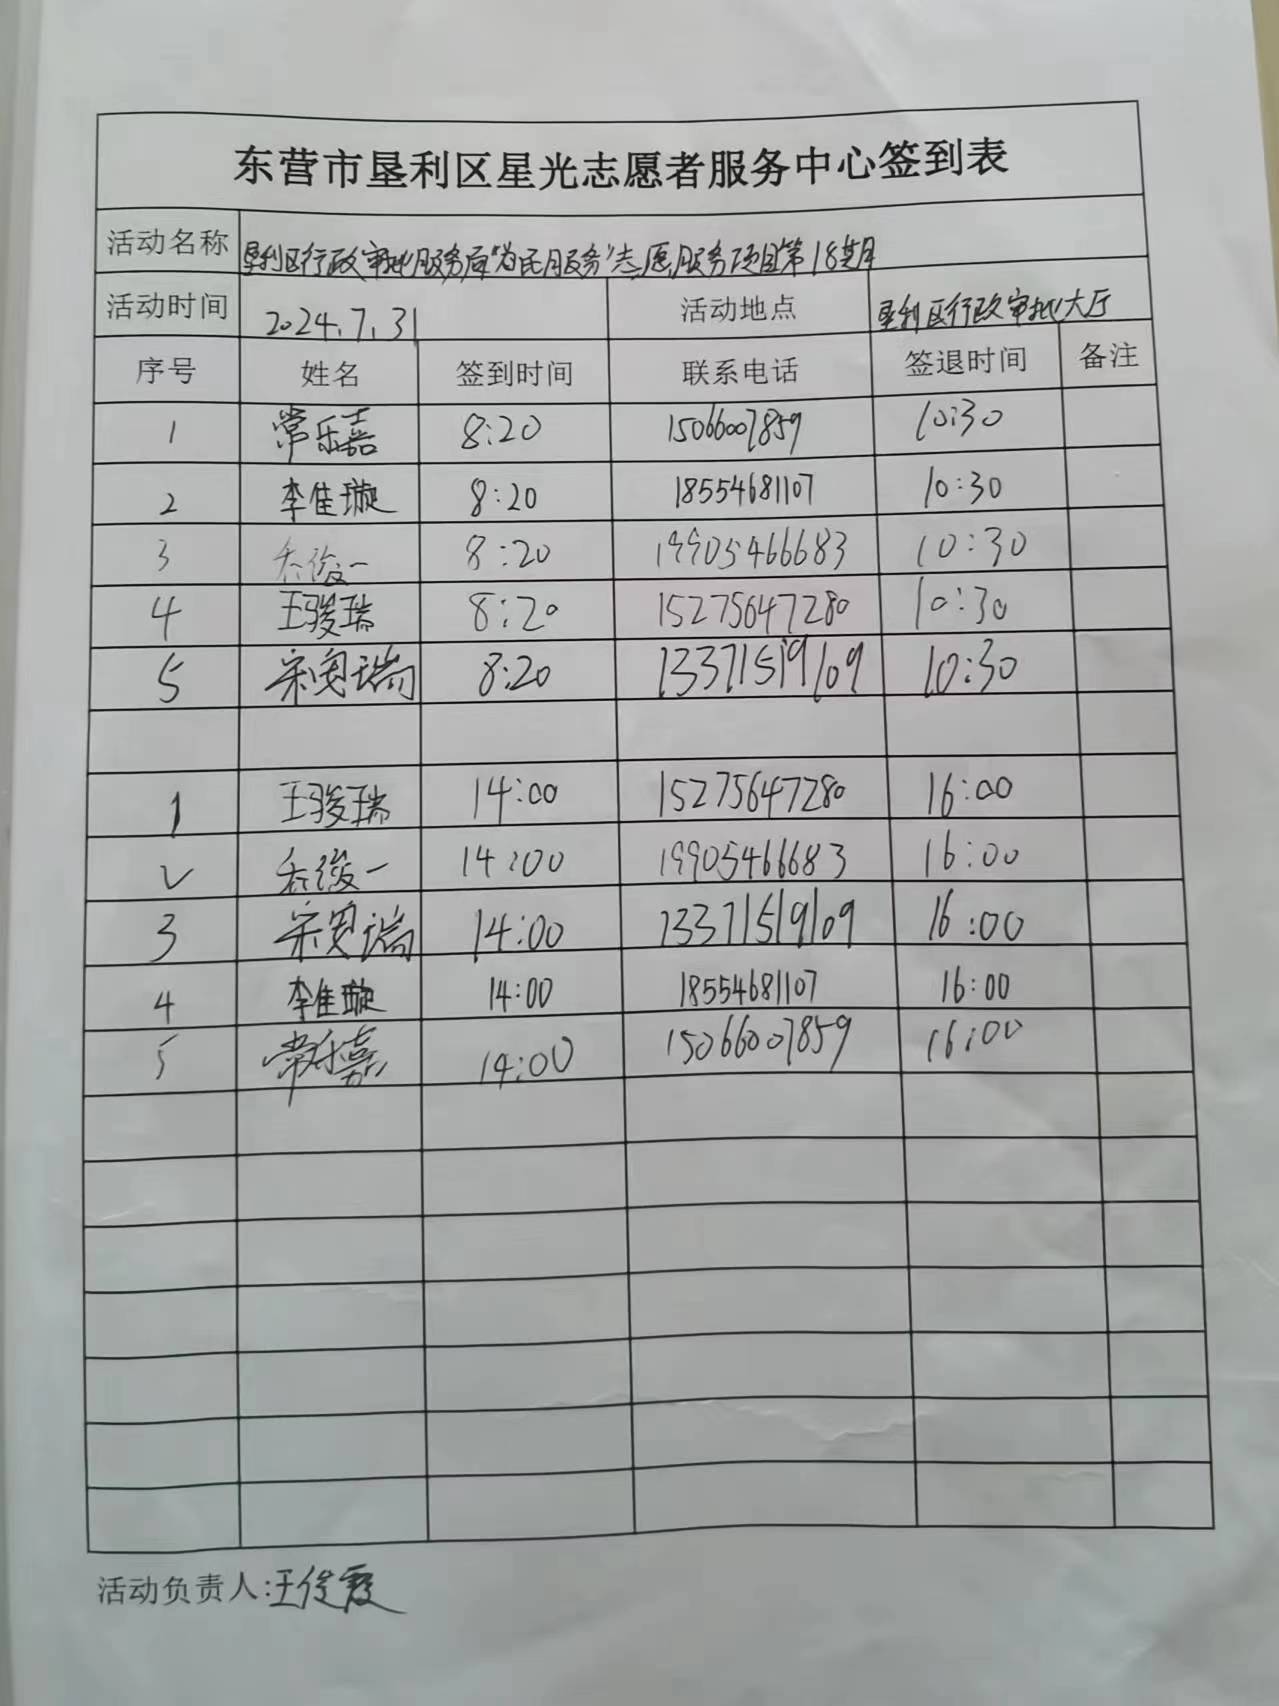 东营市垦利区星光志愿者服务中心签到表
活动名称 垦利区行政审批服务局“为民服务”志愿服务项目第18期
活动时间 2024.7.31 活动地点 垦利区行政审批大厅
序号 姓名 签到时间 联系电话 签退时间 备注
1 常乐嘉 8:20 15066007859 10:30
2 李佳璇 8:20 18554681107 10:30
3 俊一 8:20 19905466683 10:30
4 王骏瑞 8:20 15275647280 10:30
5 宋 瑞 8:20 13371519109 10:30
1 王骏瑞 14:00 15275647280 16:00
2 俊一 14:00 19905466683 16:00
3 宋 瑞 14:00 13371519109 16:00
4 李佳璇 14:00 18554681107 16:00
5 常乐嘉 14:00 15066007859 16:00
活动负责人:王俊霞